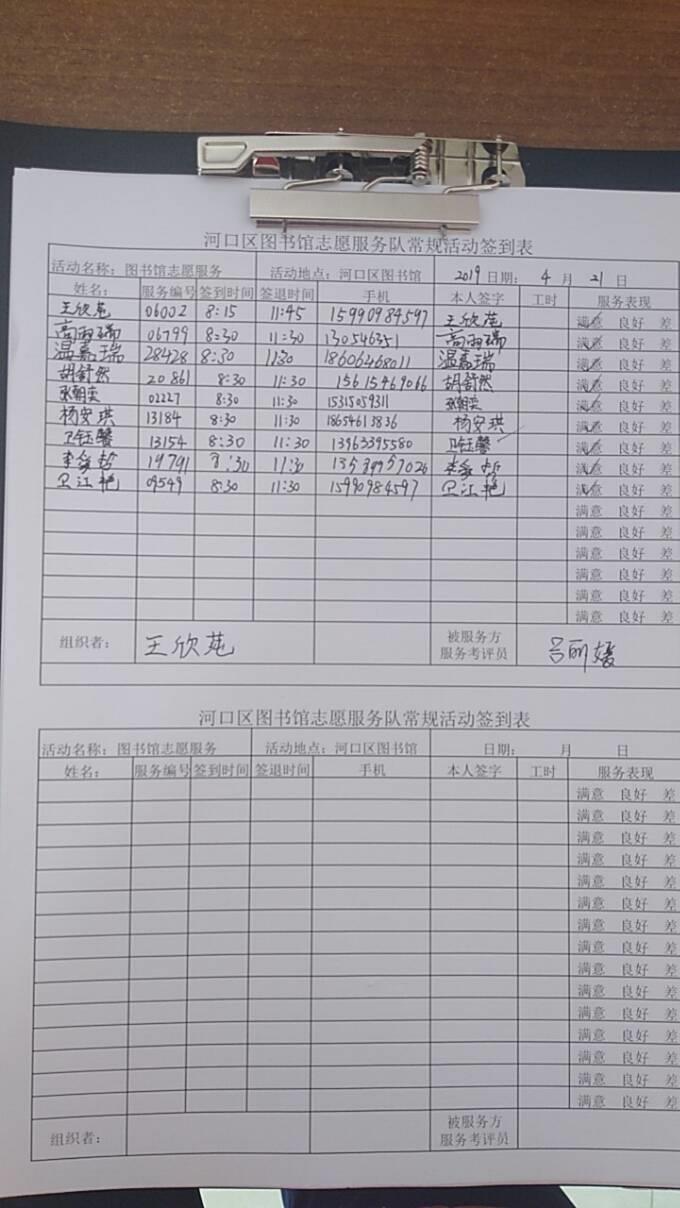 河口区图书馆志愿服务队常规活动签到表
活动名称：图书馆志愿服务 活动地点：河口区图书馆 2019 日期： 4 月 21 日
姓名： 服务编号 签到时间 签退时间 手机 本人签字 工时 服务表现
王欣苑 06002 8:15 11:45 15990984597 王欣苑 满意 良好 差
高雨瑞 06799 8:30 11:30 130546351 高雨瑞 满意 良好 差
温嘉瑞 28428 8:30 11:30 18606468011 温嘉瑞 满意 良好 差
胡舒然 20861 8:30 11:30 15615469066 胡舒然 满意 良好 差
张朝奕 02227 8:30 11:30 15315059311 张朝奕 满意 良好 差
杨安琪 13184 8:30 11:30 18654613836 杨安琪 满意 良好 差
卫钰馨 13154 8:30 11:30 13963395580 卫钰馨 满意 良好 差
19791 8:30 11:30 满意 良好 差
卫江艳 09549 8:30 11:30 15990984597 卫江艳 满意 良好 差
满意 良好 差
满意 良好 差
满意 良好 差
满意 良好 差
满意 良好 差
满意 良好 差
组织者： 王欣苑 被服务方 吕丽媛
服务考评员
河口区图书馆志愿服务队常规活动签到表
活动名称：图书馆志愿服务 活动地点：河口区图书馆 日期： 月 日
姓名： 服务编号 签到时间 签退时间 手机 本人签字 工时 服务表现
满意 良好 差
满意 良好 差
满意 良好 差
满意 良好 差
满意 良好 差
满意 良好 差
满意 良好 差
满意 良好 差
满意 良好 差
满意 良好 差
满意 良好 差
满意 良好 差
满意 良好 差
满意 良好 差
满意 良好 差
组织者： 被服务方
服务考评员